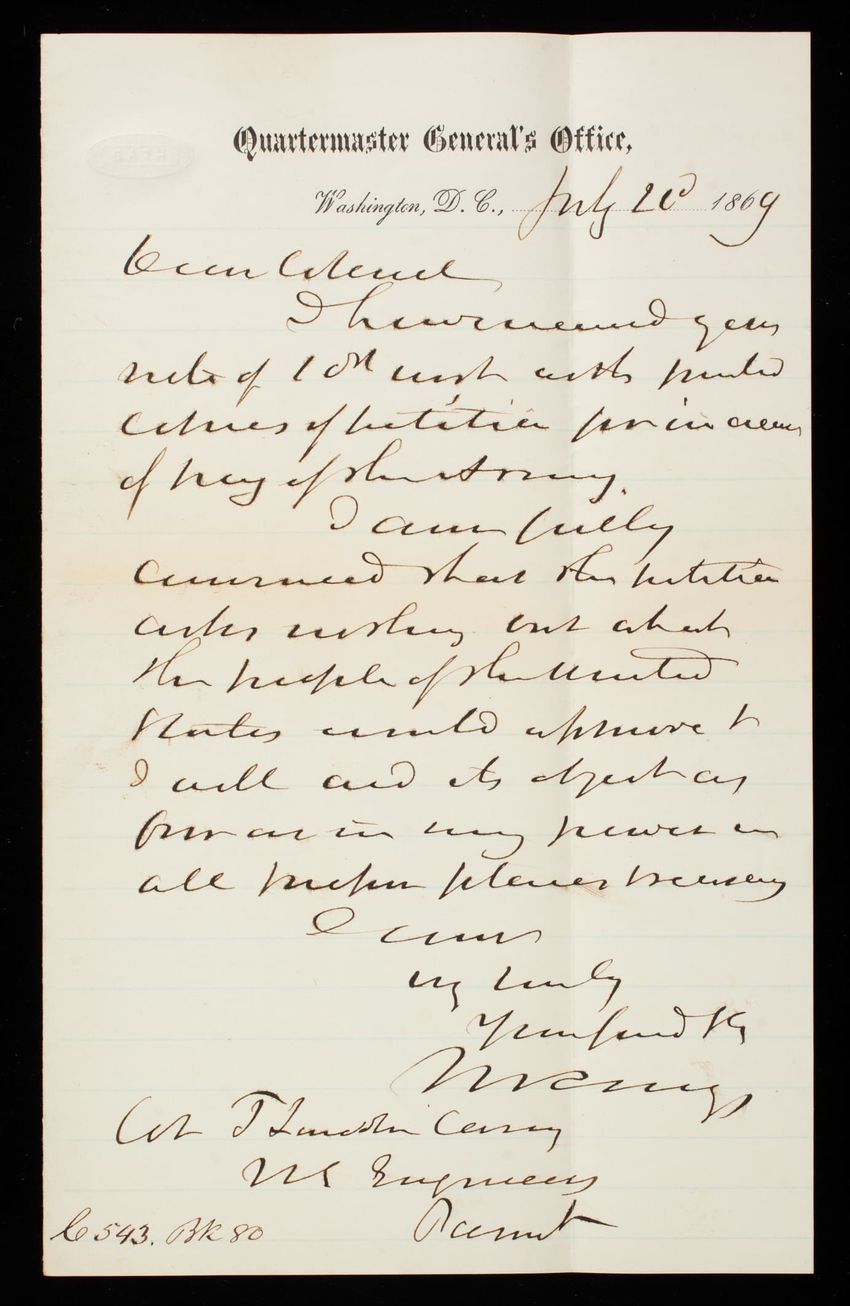 Quartermaster General's Office,
Washington, D. C., July 1869
Dear Colonel
I have received your
note of inst with printed
copies of petition for increase
of pay of the Army.
I am fully
convinced that the petition
asks nothing but what
the people of the United
States would approve &
I will aid its object as
far as in my power in
all proper places & reasons
I am
very truly
Your friend &c
M C Meigs
Col T Lincoln Casey
US Engineers
Present
C 543. Bk 80